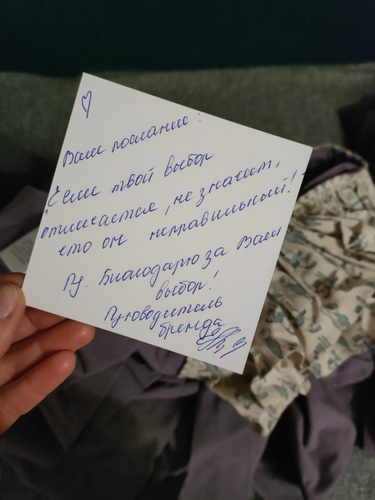 Ваше послание:
"Если твой выбор
отличается, не значит,
что он неправильный!"
Р.s. Благодарю за Ваш
выбор!
Руководитель
бренда